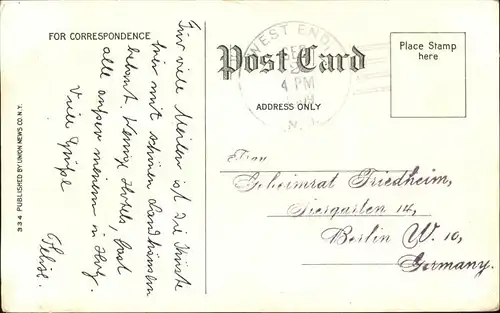 FOR CORRESPONDENCE
Für viele Meilen ist die Küste
hier mit schönen Landhäusern
bebaut. Wenige Hotels, fast
alle ausser meinem in Hng.
Viele Grüsse
Felix.
334 PUBLISHED BY UNION NEWS CO. N.Y.
Post Card
ADDRESS ONLY
WEST END,
4 PM
N. J.
Place Stamp
here
Frau
Geheimrat Friedheim,
Tiergarten 14,
Berlin W. 10,
Germany.